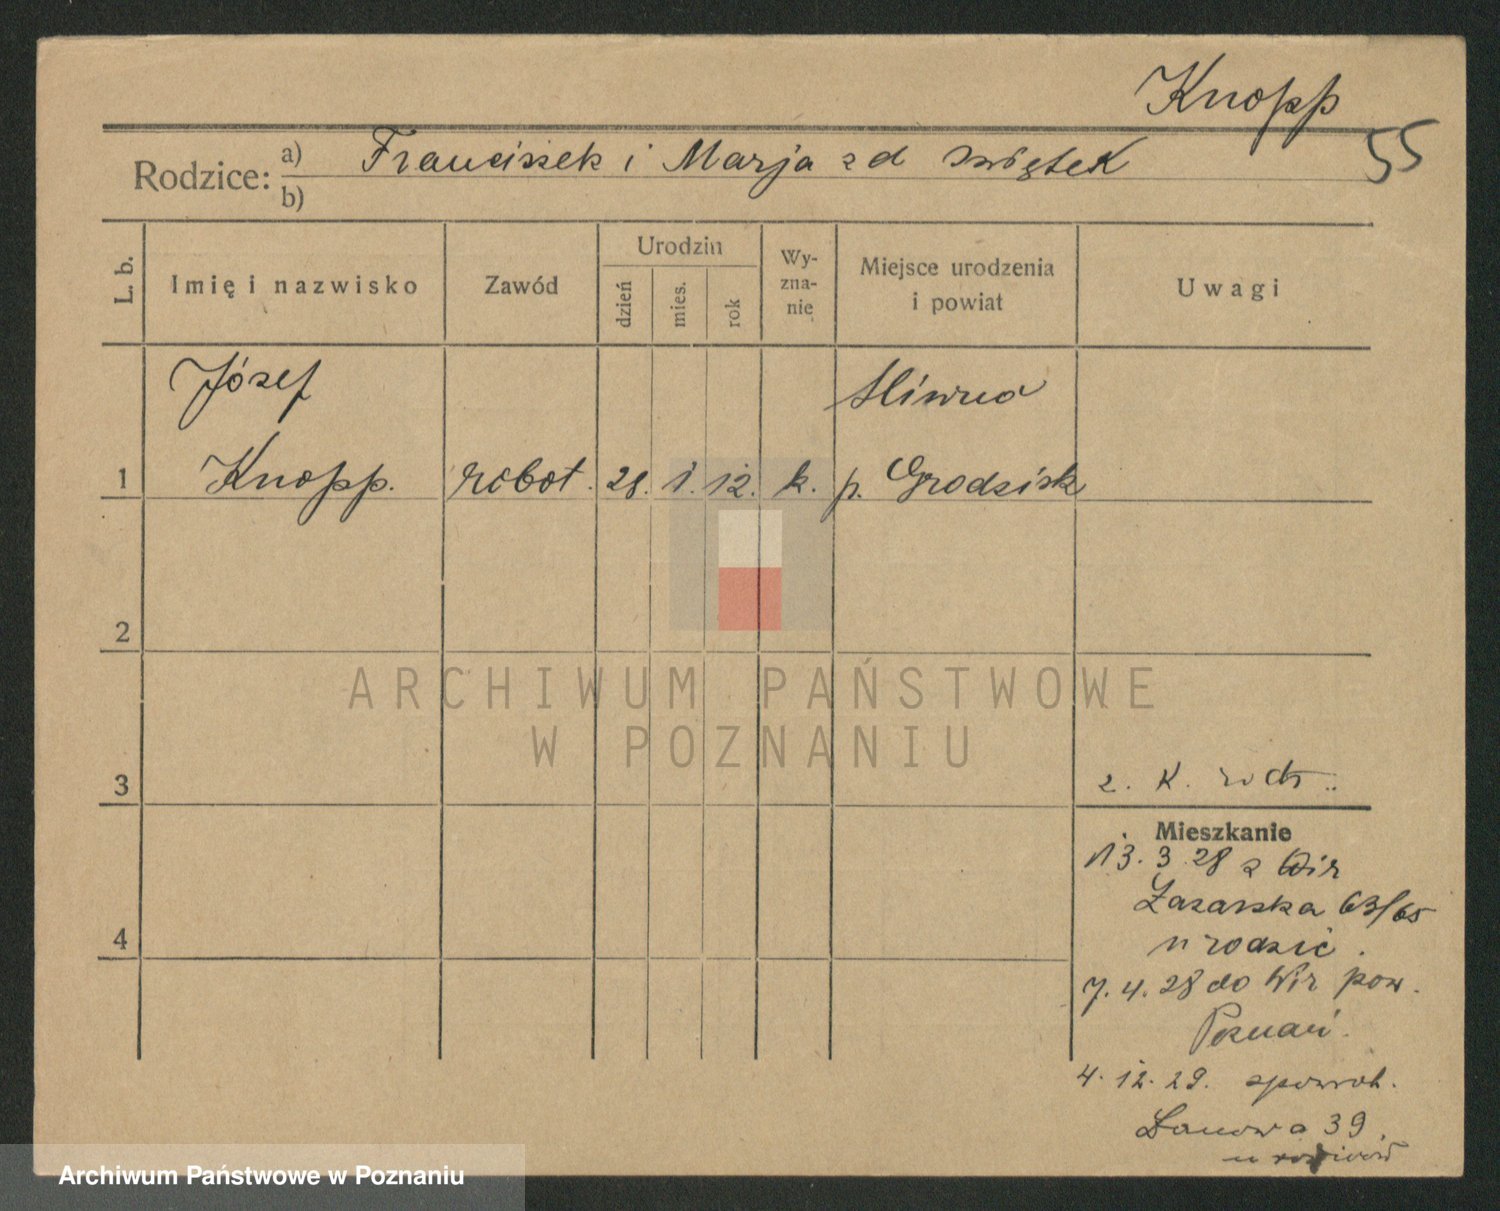 Knopp
55
Rodzice: a) Franciszek i Marja zd Świętek
b)
L. b.
Imię i nazwisko
Zawód
Urodzin
dzień
mies.
rok
Wy-
zna-
nie
Miejsce urodzenia
i powiat
Uwagi
Józef
Śliwno
1 Knopp. robot. 28. 1. 12. k. p. Grodzisk
2
ARCHIWUM PAŃSTWOWE
W POZNANIU
3
z. K.
Mieszkanie
13. 3 28 z Wir
Łazarska 63/65
u rodzic.
4
7. 4. 28 do Wir pow.
Poznań.
4. 12. 29. zpowrot.
Łanowa 39
u rodziców
Archiwum Państwowe w Poznaniu